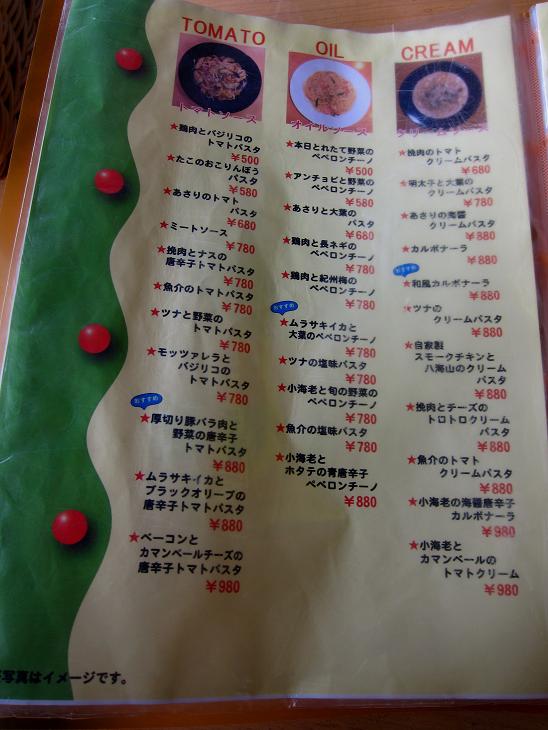 TOMATO
トマトソース
★鶏肉とバジリコの
トマトパスタ
￥500
★たこのおこりんぼう
パスタ
￥580
★あさりのトマト
パスタ
￥680
★ミートソース
￥780
★挽肉とナスの
唐辛子トマトパスタ
￥780
★魚介のトマトパスタ
￥780
★ツナと野菜の
トマトパスタ
￥780
★モッツァレラと
バジリコの
トマトパスタ
￥780
おすすめ
★厚切り豚バラ肉と
野菜の唐辛子
トマトパスタ
￥880
★ムラサキイカと
ブラックオリーブの
唐辛子トマトパスタ
￥880
★ベーコンと
カマンベールチーズの
唐辛子トマトパスタ
￥980
OIL
オイルソース
★本日とれたて野菜の
ペペロンチーノ
￥500
★アンチョビと野菜の
ペペロンチーノ
￥580
★あさりと大葉の
パスタ
￥680
★鶏肉と長ネギの
ペペロンチーノ
￥780
★鶏肉と紀州梅の
ペペロンチーノ
￥780
おすすめ
★ムラサキイカと
大葉のペペロンチーノ
￥780
★ツナの塩味パスタ
￥780
★小海老と旬の野菜の
ペペロンチーノ
￥780
★魚介の塩味パスタ
￥780
★小海老と
ホタテの青唐辛子
ペペロンチーノ
￥880
CREAM
クリームソース
★挽肉のトマト
クリームパスタ
￥680
★明太子と大葉の
クリームパスタ
￥780
★あさりの海醤
クリームパスタ
￥880
★カルボナーラ
￥880
おすすめ
★和風カルボナーラ
￥880
★ツナの
クリームパスタ
￥880
★自家製
スモークチキンと
八海山のクリーム
パスタ
￥880
★挽肉とチーズの
トロトロクリーム
パスタ
￥880
★魚介のトマト
クリームパスタ
￥880
★小海老の海醤唐辛子
カルボナーラ
￥980
★小海老と
カマンベールの
トマトクリーム
￥980
写真はイメージです。